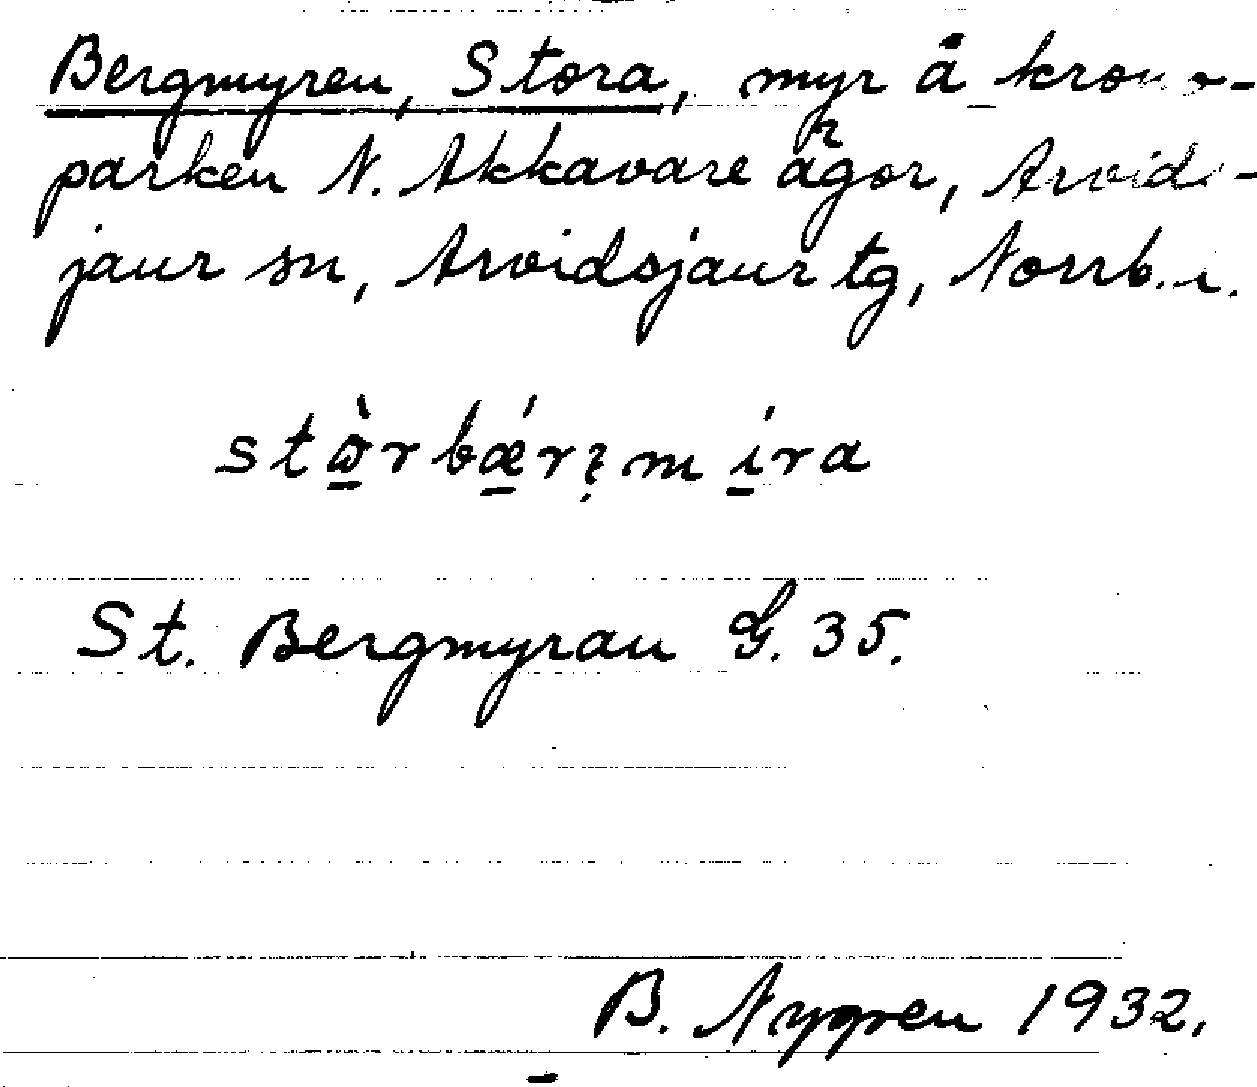 Bergmyren, Stora, myr å krono-
parken N. Akkavare ägor, Arvids-
jaur sn, Arvidsjaur tg, Norrb. l.
St. Bergmyran G. 35.
B. Nygren 1932.